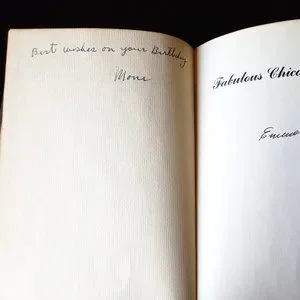 Best wishes on your Birthday
Mone
Fabulous Chica